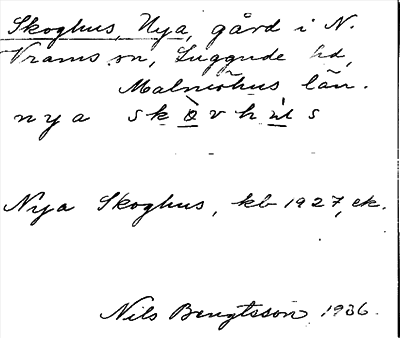 Skoghus, Nya, gård i N.
Vrams sn, Luggude hd,
Malmöhus län.
nya skòvhùs
Nya Skoghus, kb 1927, ek.
Nils Bengtsson 1936.